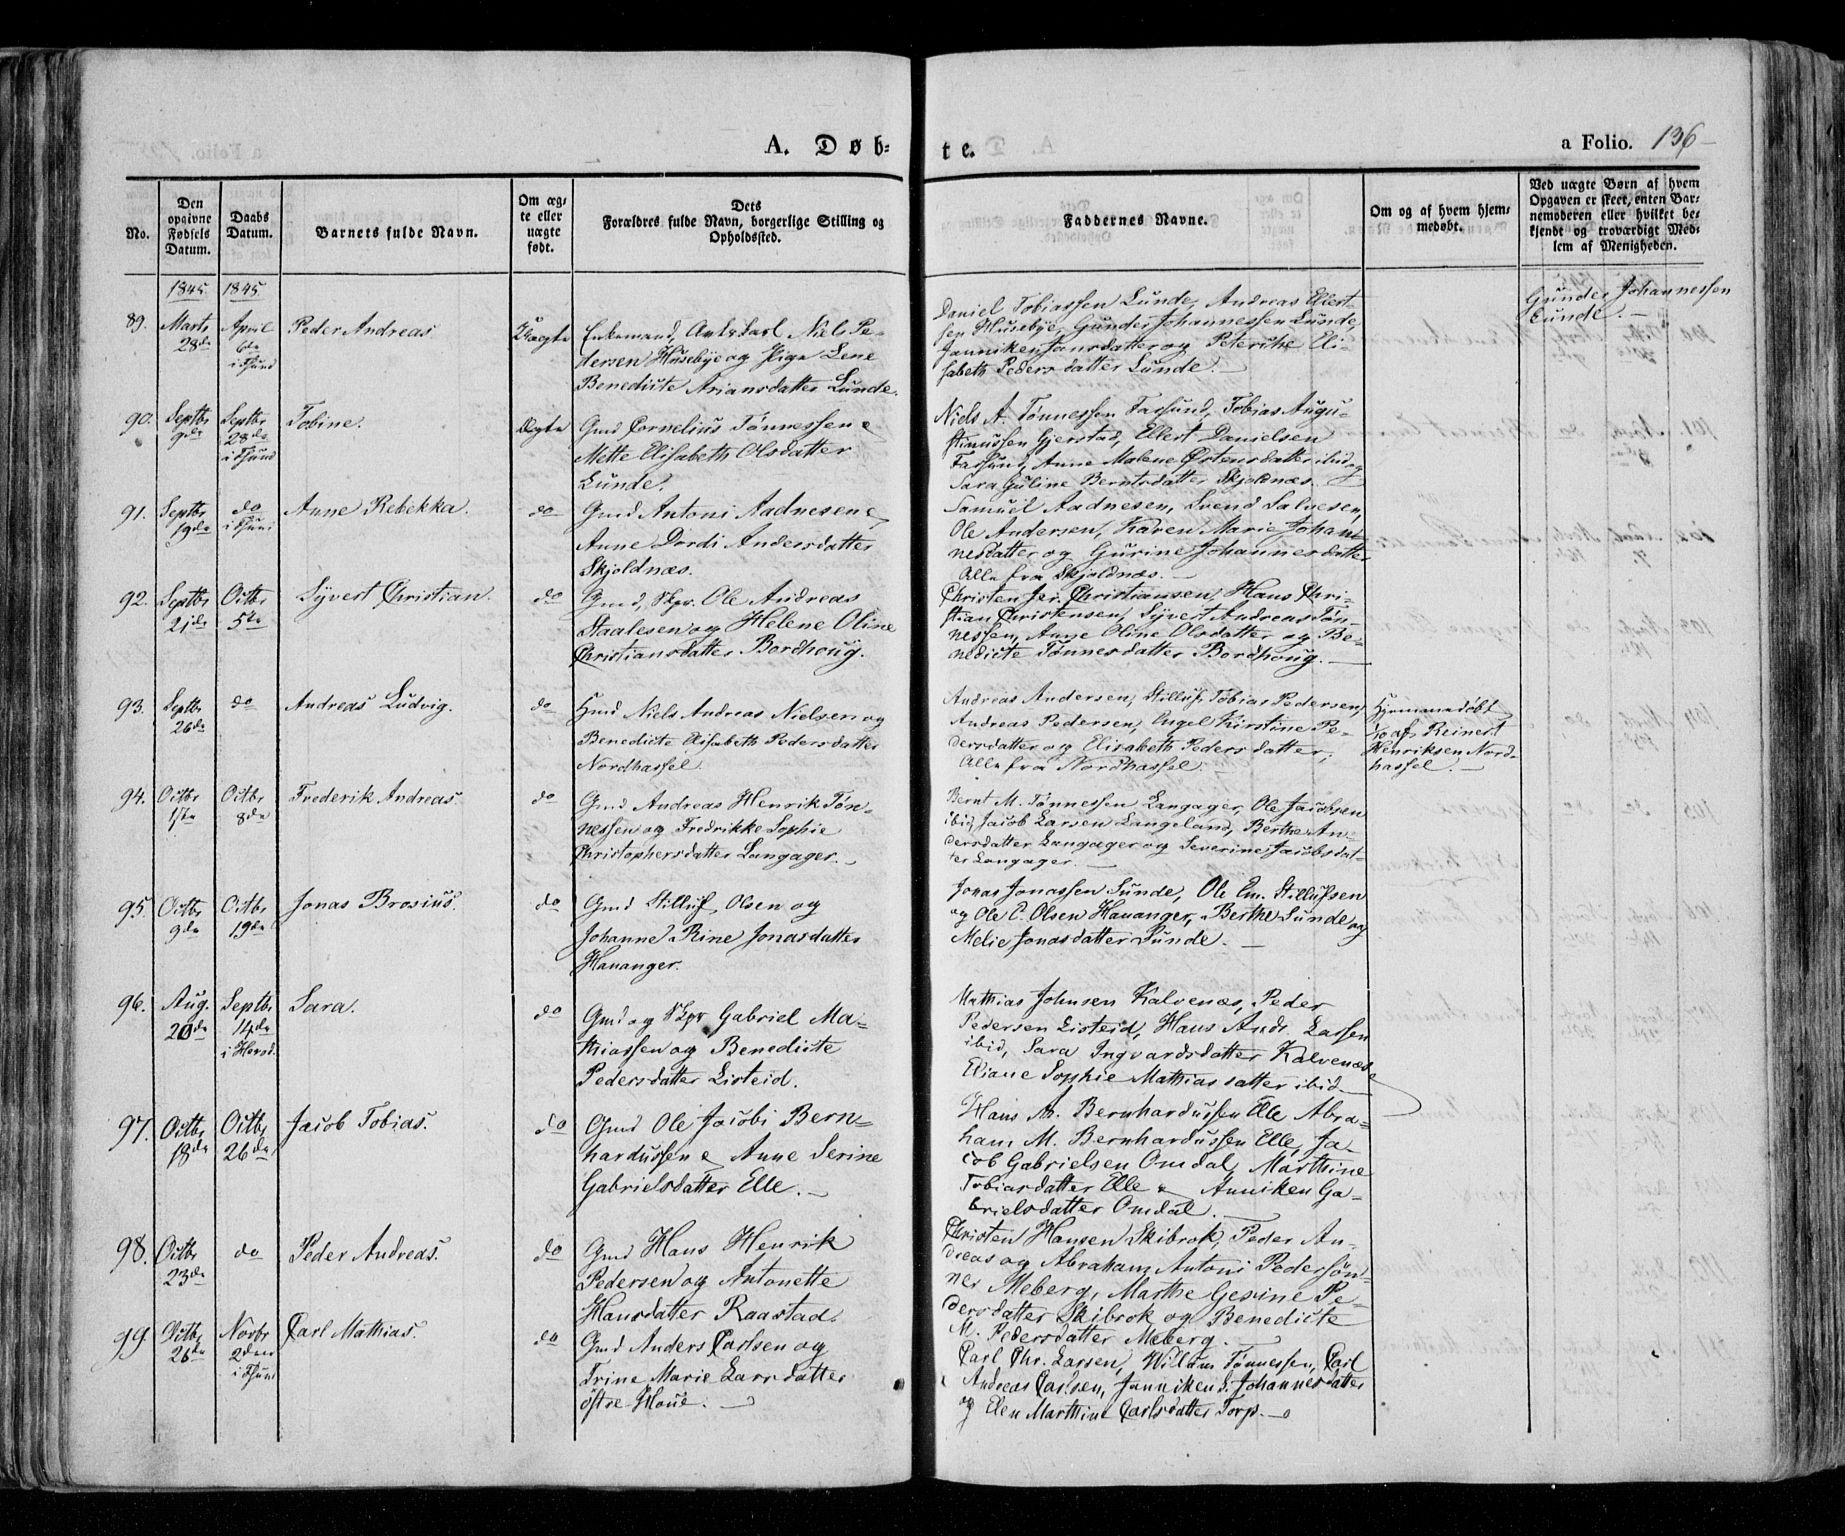 A. Døb-
te.
a Folio. 136
No.
Den
opgivne
Fødsels
Datum.
Daabs
Datum.
Barnets fulde Navn.
Om æg-
te eller
uægte
født.
Dets
Forældres fulde Navn, borgerlige Stilling og
Opholdssted.
Faddernes Navne.
Om og af hvem hjem-
medøbt.
Ved uægte Børn af hvem
Opgaven er skeet, enten Bar-
nemoderen eller hvilket be-
kjendt og troværdigt Med-
lem af Menigheden.
1845. 1845.
89.
Marts
28de
April
6te
i Fsund
Peder Andreas
Uægte
Enkemand, Niels Pe-
dersen Husebye og Pige Lene
Benedicte Ariansdatter Lunde.
Daniel Tobiassen Lunde, Andreas Ellert-
sen Husebye, Gunder Johannessen Lunde,
Janniken Jansdatter og Petersine Eli-
sabeth Pedersdatter Lunde.
Gunder Johannessen
Lunde.
90.
Septbr
9de
Septbr
28de
i Fsund
Tobine.
Ægte
Gmd Cornelius Tønnessen &
Mette Elisabeth Olsdatter
Lunde.
Niels A. Tønnessen Farsund, Tobias Augu-
stinussen Gjerstad, Ellert Danielsen
Farsund, Anne Malene Østensdatter ibid og
Sara Guline Berntsdatter Skjoldnæs.
91.
Septbr
19de
do
i Fsund
Anne Rebekka.
do
Gmd Antoni Aadnesen &
Anne Dordi Andersdatter
Skjoldnæs.
Samuel Aadnesen, Svend Salvesen,
Ole Andersen, Karen Marie Johan-
nesdatter og Gurine Johannesdatter
Alle fra Skjoldnæs.
92.
Septbr
21de
Octbr
5te
Syvert Christian.
do
Gmd, Skpr. Ole Andreas
Staalesen og Helene Oline
Christiansdatter Bordhoug.
Christen Jei. Christiansen, Hans Chri-
stian Christensen, Syvert Andreas Tøn-
nessen, Anne Oline Olsdatter og Be-
nedicte Tønnesdatter Bordhoug.
93.
Septbr
26de
do
Andreas Ludvig.
do
Hmd Niels Andreas Nielsen og
Benedicte Elisabeth Pedersdatter
Nordhassel.
Andreas Andersen, Stilluf Tobias Pedersen,
Andreas Pedersen, Engel Kirstine Pe-
dersdatter og Elisabeth Pedersdatter,
Alle fra Nordhassel.
Hjemmedøbt
af Reinert
Henriksen Nord-
hassel.
94.
Octbr
1ste
Octbr
8de
Frederik Andreas
do
Gmd Andreas Henrik Tøn-
nessen og Fredrikke Sophie
Christophersdatter Langager.
Bernt M. Tønnessen Langager, Ole Jacobsen
ibid, Jacob Larsen Langeland, Berthe An-
dersdatter Langager og Severine Jacobsdat-
ter Langager.
95.
Octbr
9de
Octbr
19de
Jonas Brosius.
do
Gmd Stilluf Olsen og
Johanne Rine Jonasdatter
Hananger.
Jonas Jonassen Sunde, Ole Em. Stillufsen
og Ole C. Olsen Hananger, Berthe Sunde og
Melie Jonasdatter Sunde.
96.
Aug.
20de
Septbr
14de
i Hersd.
Sara.
do
Gmd og Skpr Gabriel Ma-
thiassen og Benedicte
Pedersdatter Listeid.
Mathias Johnsen Kalvenæs, Peder
Pedersen Listeid, Hans Andr. Larsen
ibid, Sara Ingvardsdatter Kalvenæs &
Eliane Sophie Mathiasdatter ibid
97.
Octbr
18de
Octbr
26de
Jacob Tobias.
do
Gmd Ole Jacobi Bern-
hardussen & Anne Serine
Gabrielsdatter Elle.
Hans M. Bernhardussen Elle, Abra-
ham M. Bernhardussen Elle, Ja-
cob Gabrielsen Omdal, Marthine
Tobiasdatter Elle & Anniken Ga-
brielsdatter Omdal.
98.
Octbr
23de
do
Peder Andreas.
do
Gmd Hans Henrik
Pedersen og Antonette
Hansdatter Raastad.
Christen Hansen Skibrok, Peder An-
dreas og Abraham Antoni Pedersøn-
ner Meberg, Marthe Gesine Pe-
dersdatter Skibrok og Benedicte
M. Pedersdatter Meberg.
99.
Octbr
26de
Novbr
2den
i Fsund
Carl Mathias.
do
Gmd Anders Carlsen og
Trine Marie Larsdatter
østre Houe.
Carl Chr. Larsen, Willum Tønnessen, Carl
Andreas Carlsen, Janniken S. Johannesdatter
og Elen Marthine Carlsdatter Torp.